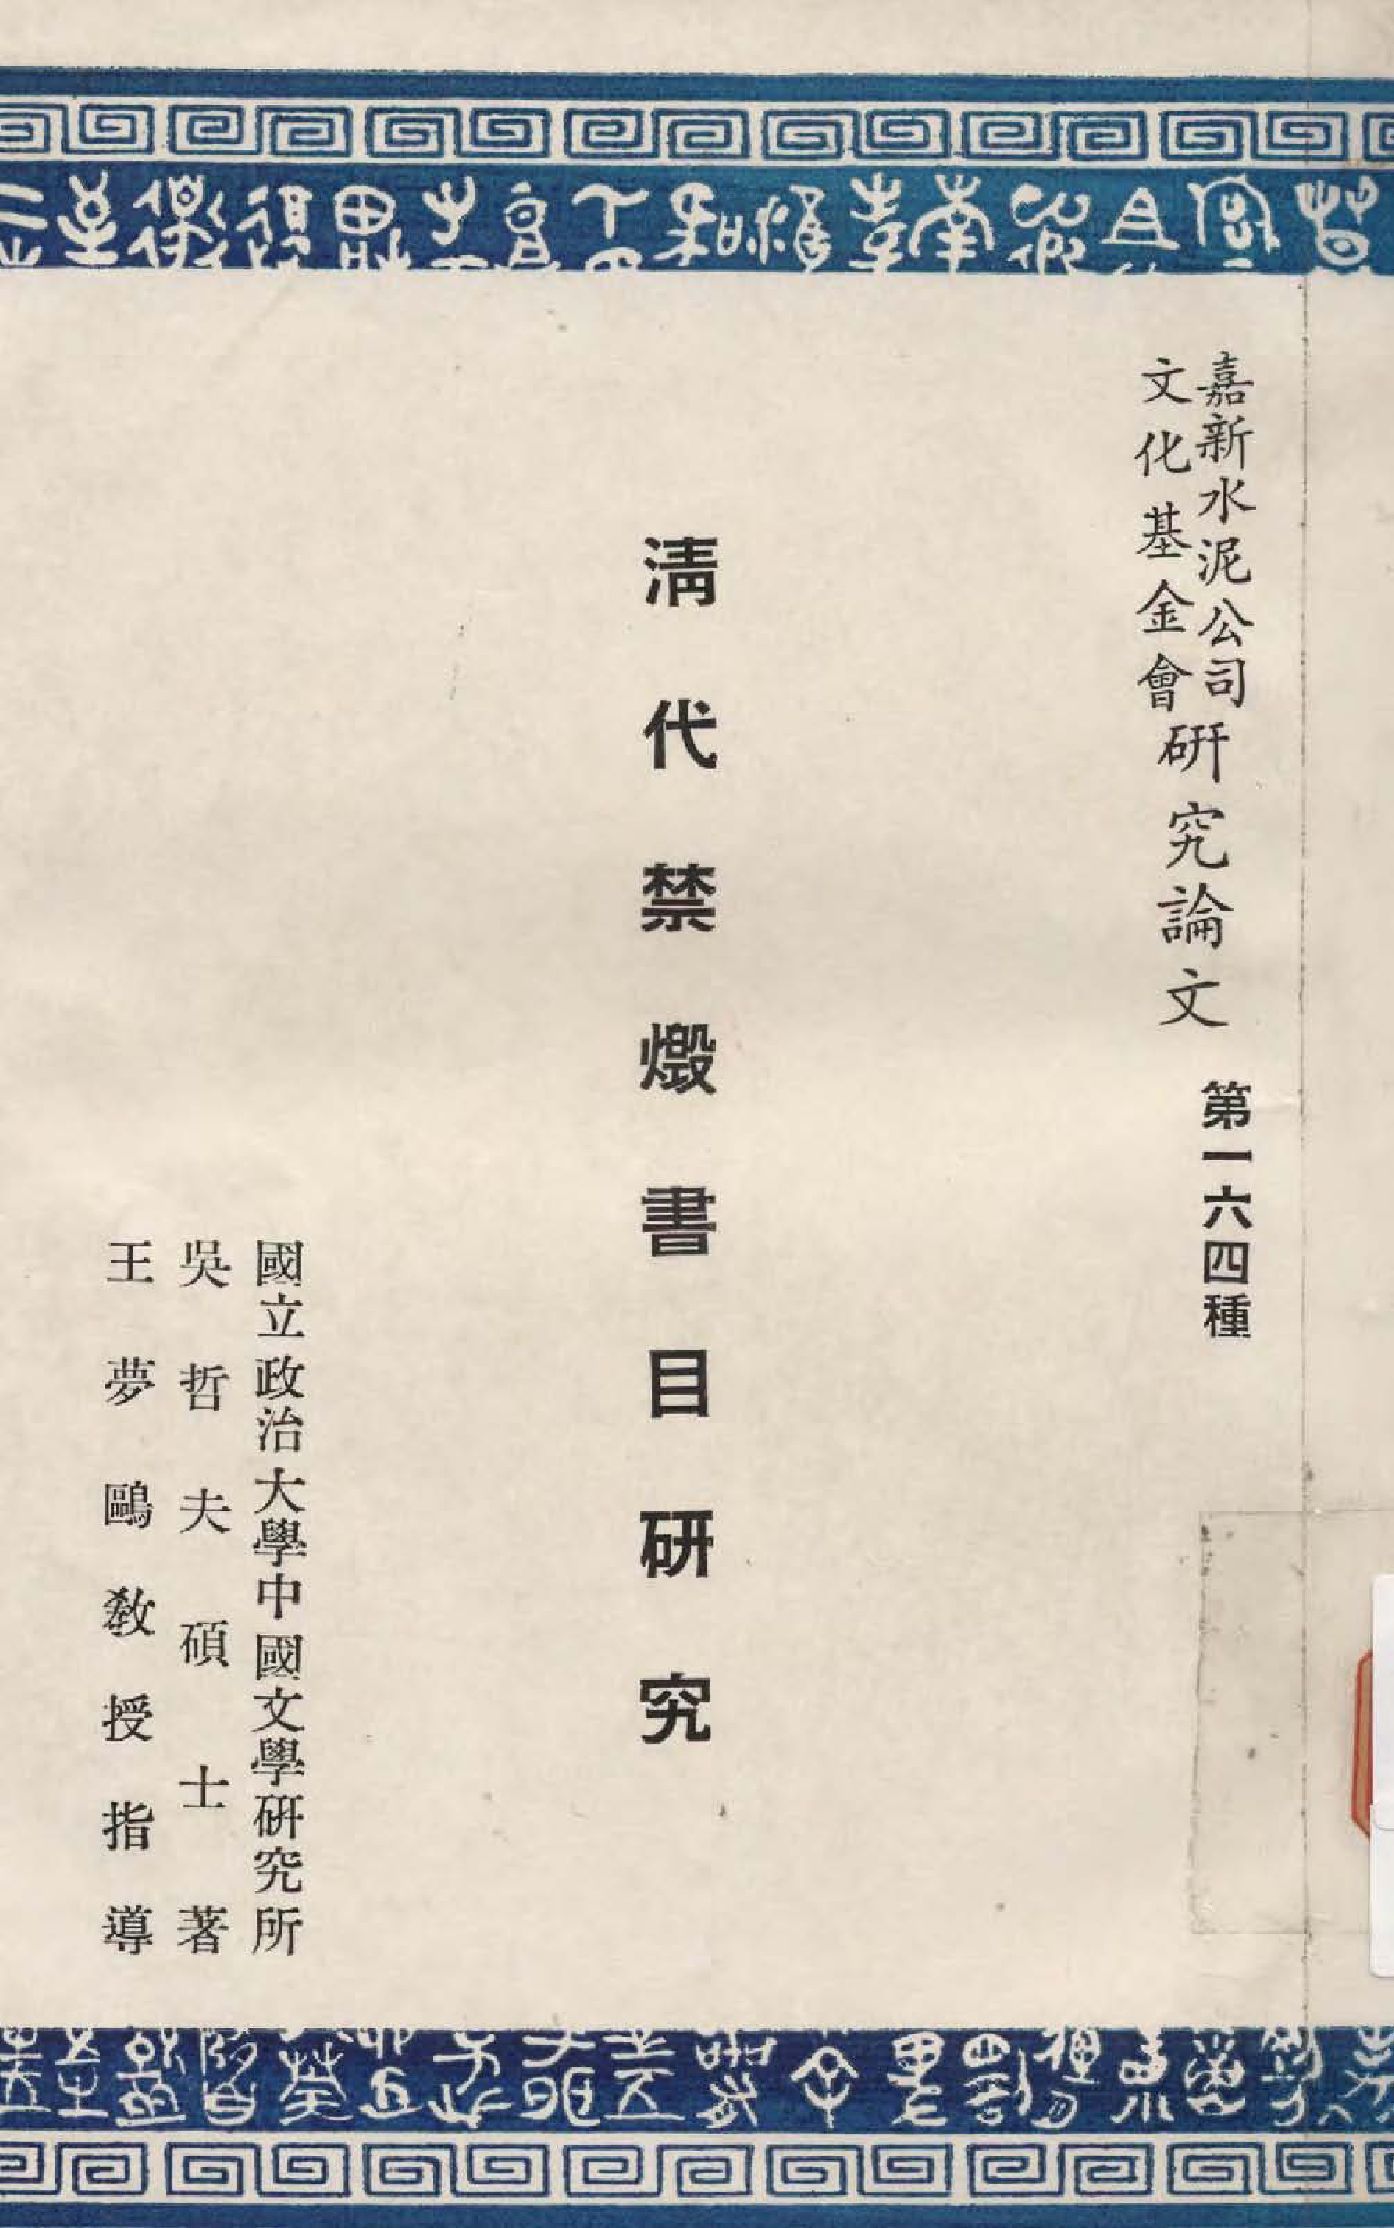 嘉新水泥公司
文化基金會
研究論文
第一六四種
清代禁燬書目研究
國立政治大學中國文學研究所
吳哲夫碩士著
王夢鷗教授指導